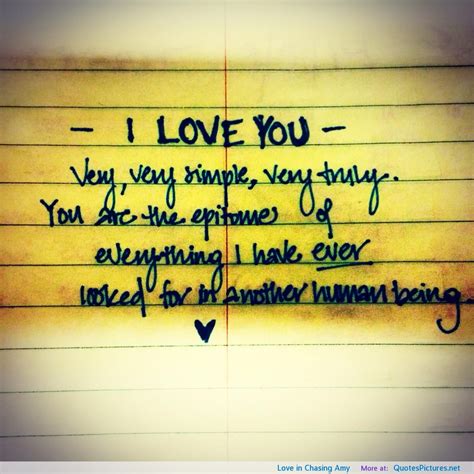 - I LOVE YOU -
Very, very simple, very truly.
You are the epitome of
everything I have ever
looked for in another human being
♥
Love in Chasing Amy More at: QuotesPictures.net